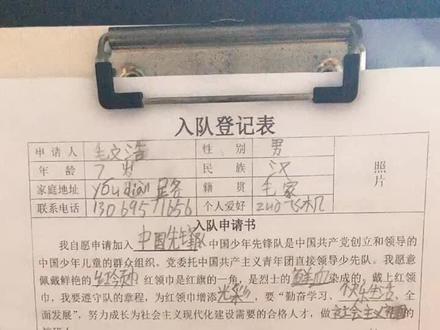 入队登记表
申请人 毛文浩 性别 男
年龄 7岁 民族 汉
家庭地址 youdian 宿舍 籍贯 毛家
照片
联系电话 13069571656 个人爱好 zuo飞机
入队申请书
我自愿申请加入 中国先锋队 中国少年先锋队是中国共产党创立和领导的
中国少年儿童的群众组织,党委托中国共产主义青年团直接领导少先队。我愿意
佩戴鲜艳的 红领巾 红领巾是红旗的一角,是烈士的 鲜血 染成的,戴上红领
巾,我要遵守队的章程,为红领巾增添 光彩 ;要“勤奋学习、快乐生活、全
面发展”,努力成长为社会主义现代化建设需要的合格人才,做 社会主义